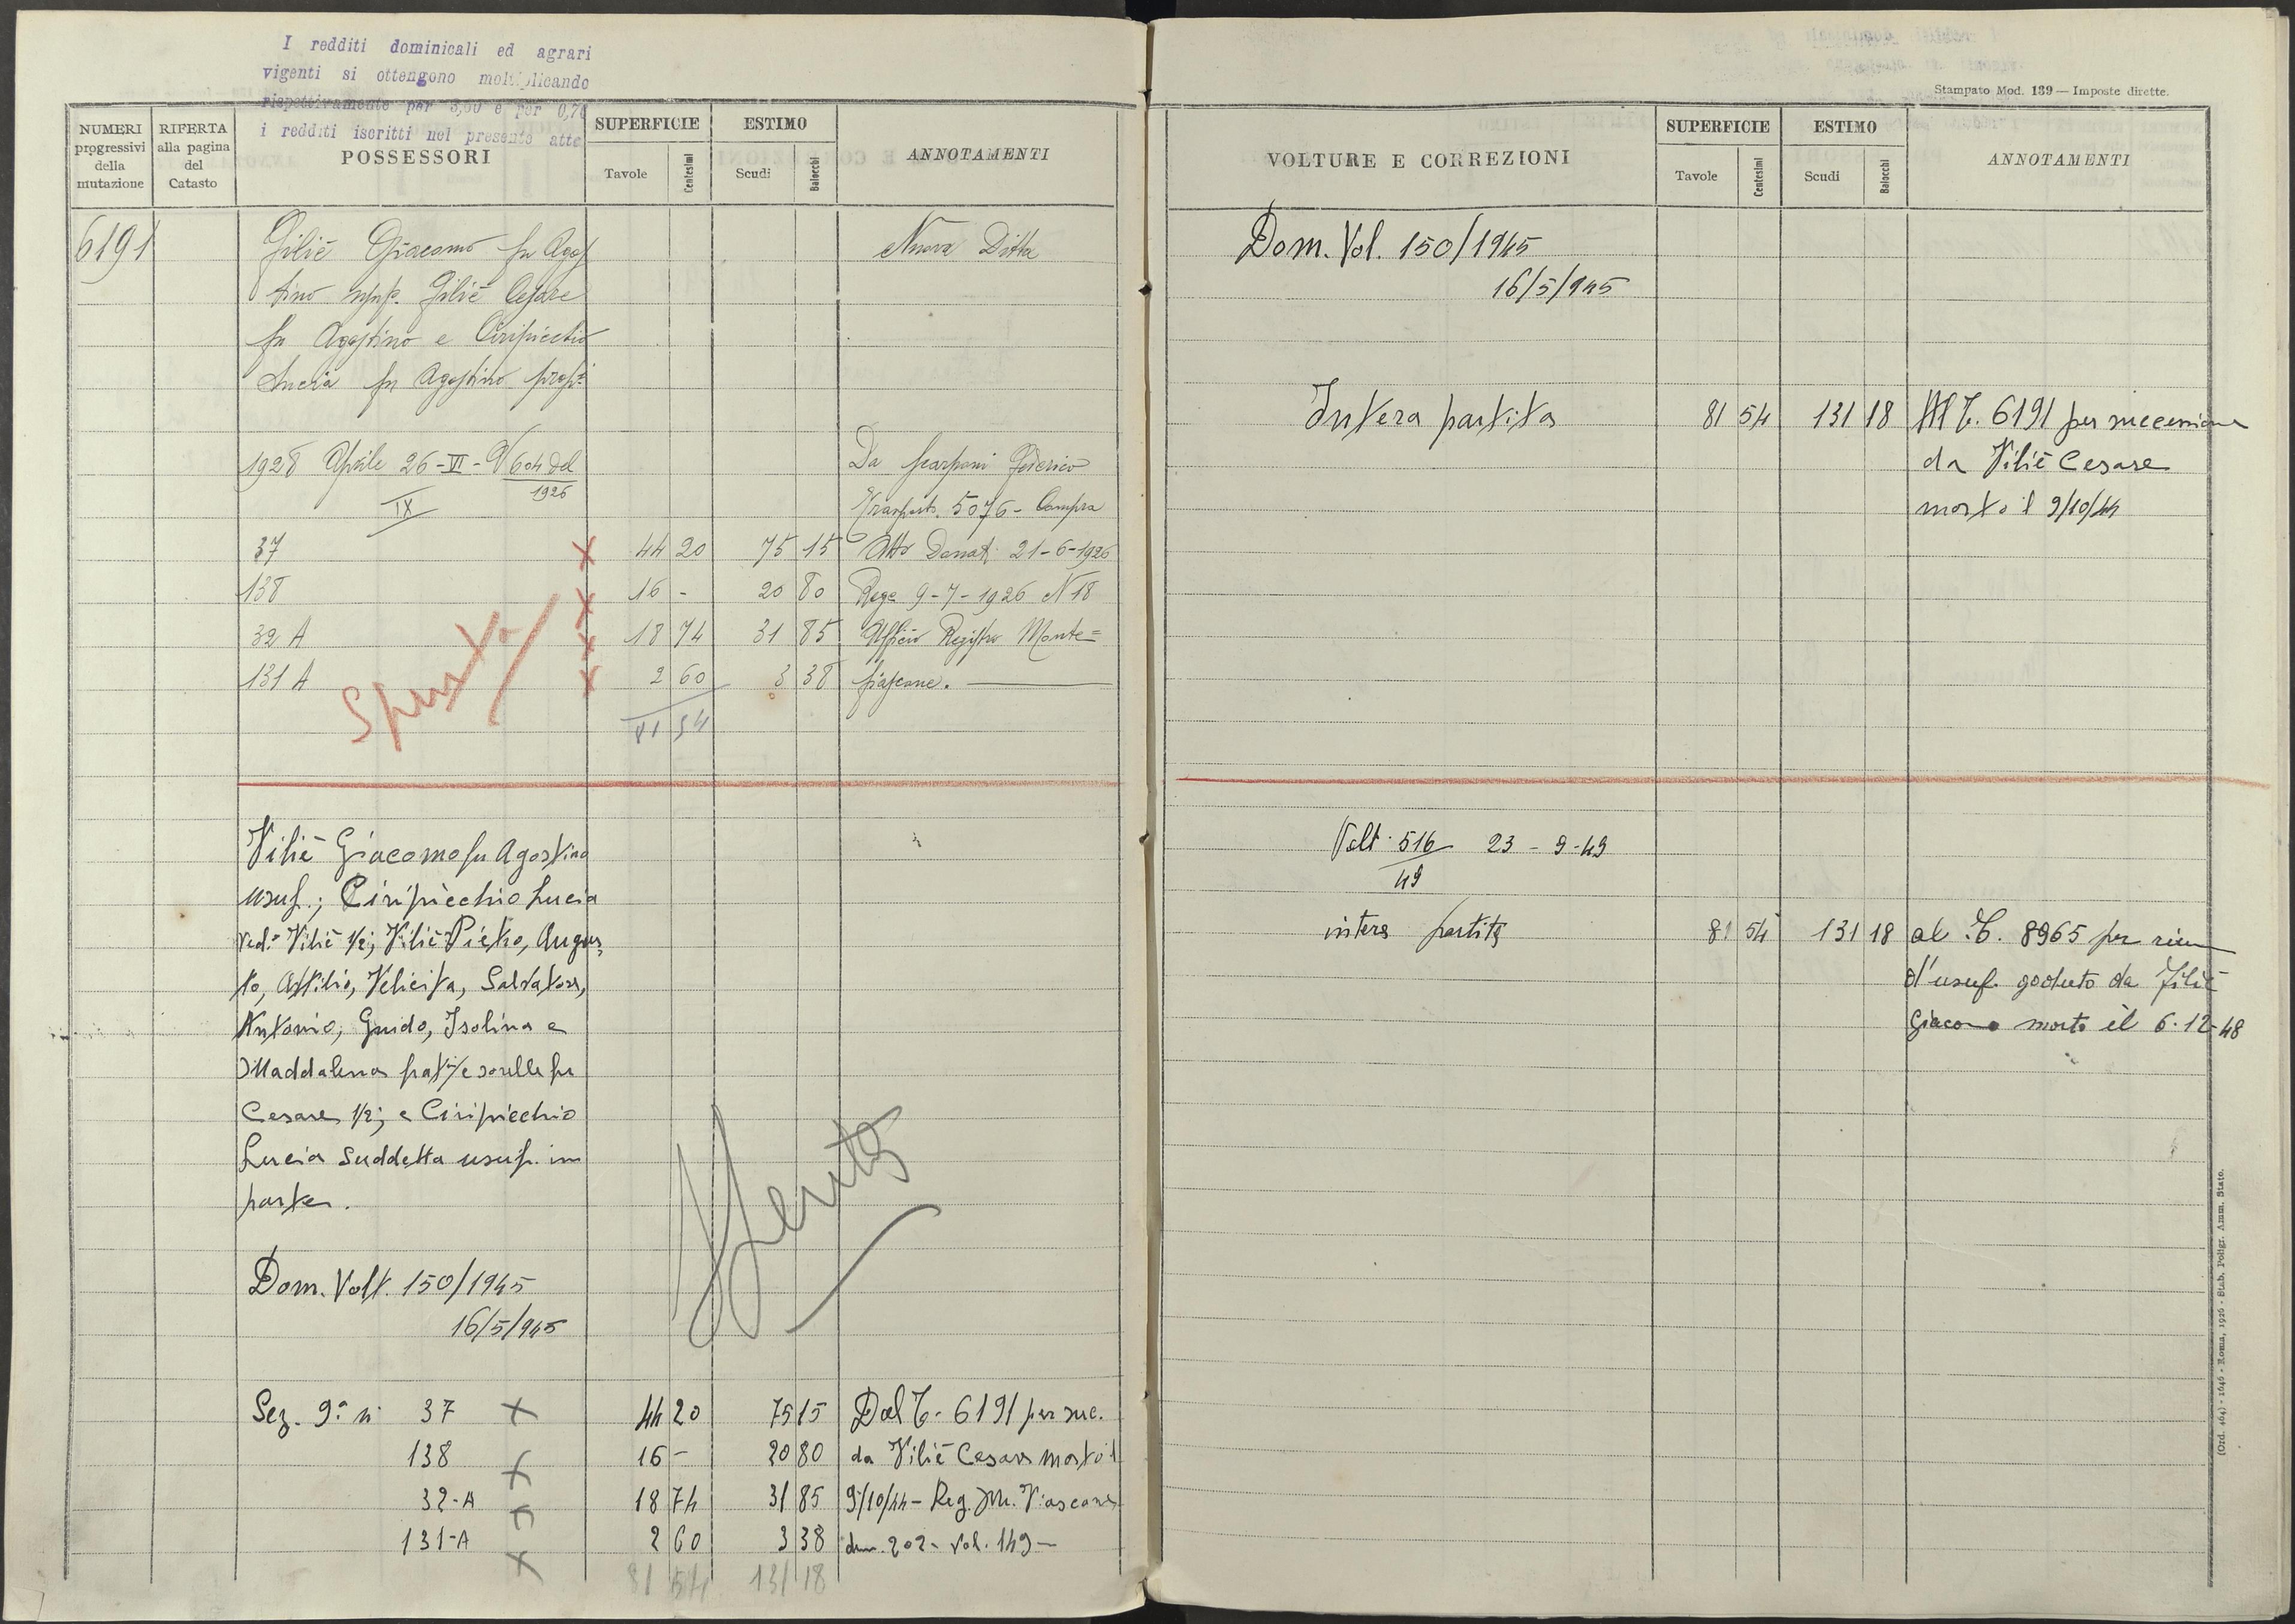 I redditi dominicali ed agrari
vigenti si ottengono moltiplicando
rispettivamente per 3,00 e per 0,70
i redditi iscritti nel presente atto
NUMERI progressivi della mutazione
RIFERTA alla pagina del Catasto
POSSESSORI
SUPERFICIE
Tavole Centesimi
ESTIMO
Scudi Baiocchi
ANNOTAMENTI
6191
Filiè Giacomo fu Agos
tino usuf. Filiè Cesare
fu Agostino e Ciripicchio
Lucia fu Agostino prop.
Nuova Ditta
1928 Aprile 26-VI- V 604 del
1926
IX
Da Scarponi Federico
Trasporto. 5076 - Compra
37 44 20 75 15 Atto Donati 21-6-1926
138 16 - 20 80 Rege 9-7-1926 N 18
32 A 18 74 31 85 Ufficio Registro Monte=
131 A 2 60 3 38 fiascone.
81 54
Spenta
Filiè Giacomo fu Agostino
usuf.; Ciripicchio Lucia
ved. Filiè 1/2; Filiè Pietro, Augus
to, Attilio, Felicita, Salvatore,
Antonio, Guido, Isolina e
Maddalena frat. e sorelle fu
Cesare 1/2; e Ciripicchio
Lucia suddetta usuf. in
parte.
Spenta
Dom. Volt. 150/1945
16/5/945
Sez. 9ª n. 37 44 20 75 15 Dal T. 6191 per suc.
138 16 - 20 80 da Filiè Cesare morto il
32-A 18 74 31 85 9/10/44 - Reg. M. Fiascone
131-A 2 60 3 38 den. 202 - vol. 149 -
81 54 131 18
Stampato Mod. 139 — Imposte dirette.
VOLTURE E CORREZIONI
SUPERFICIE
Tavole Centesimi
ESTIMO
Scudi Baiocchi
ANNOTAMENTI
Dom. Vol. 150/1945
16/5/945
Intera partita 81 54 131 18 Al T. 6191 per successione
da Filiè Cesare
morto il 9/10/44
Volt. 516 23 - 9-49
49
intera partita 81 54 131 18 al T. 8965 per riun
d'usuf. goduto da Filiè
Giacomo morto il 6-12-48
(Ord. 464) - 1646 - Roma, 1926 - Stab. Poligr. Amm. Stato.